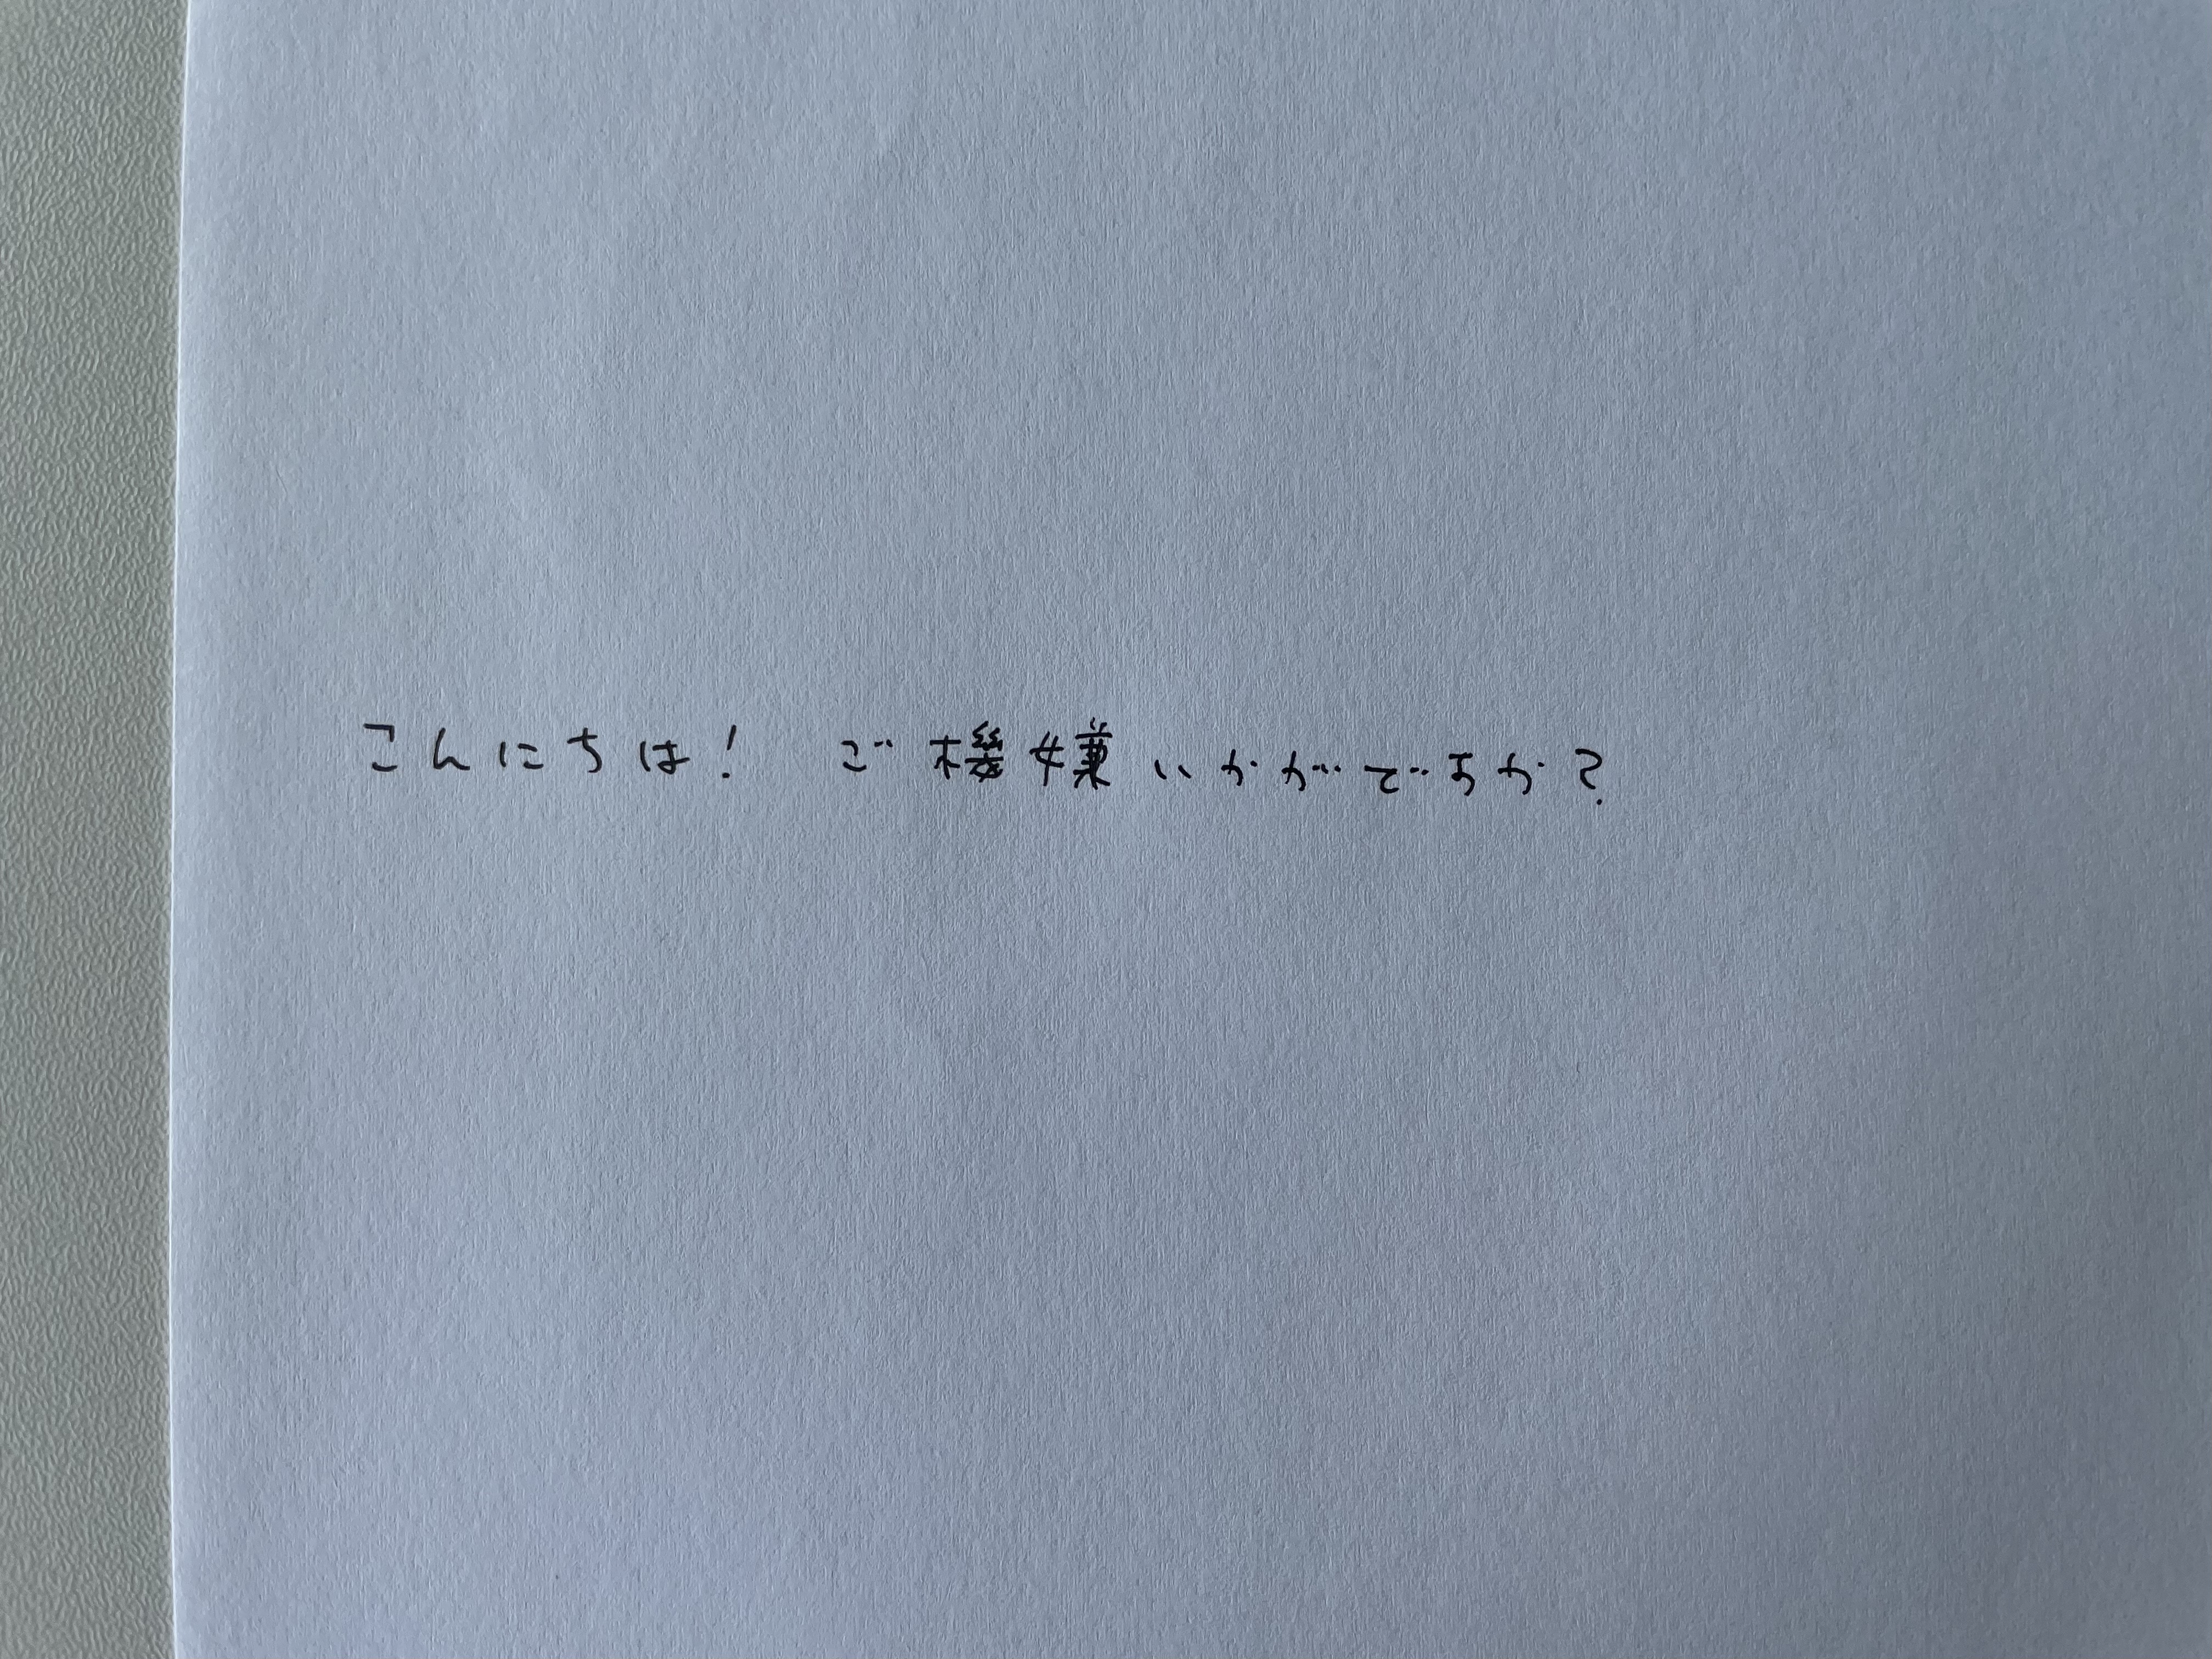 こんにちは! ご機嫌いかがですか?